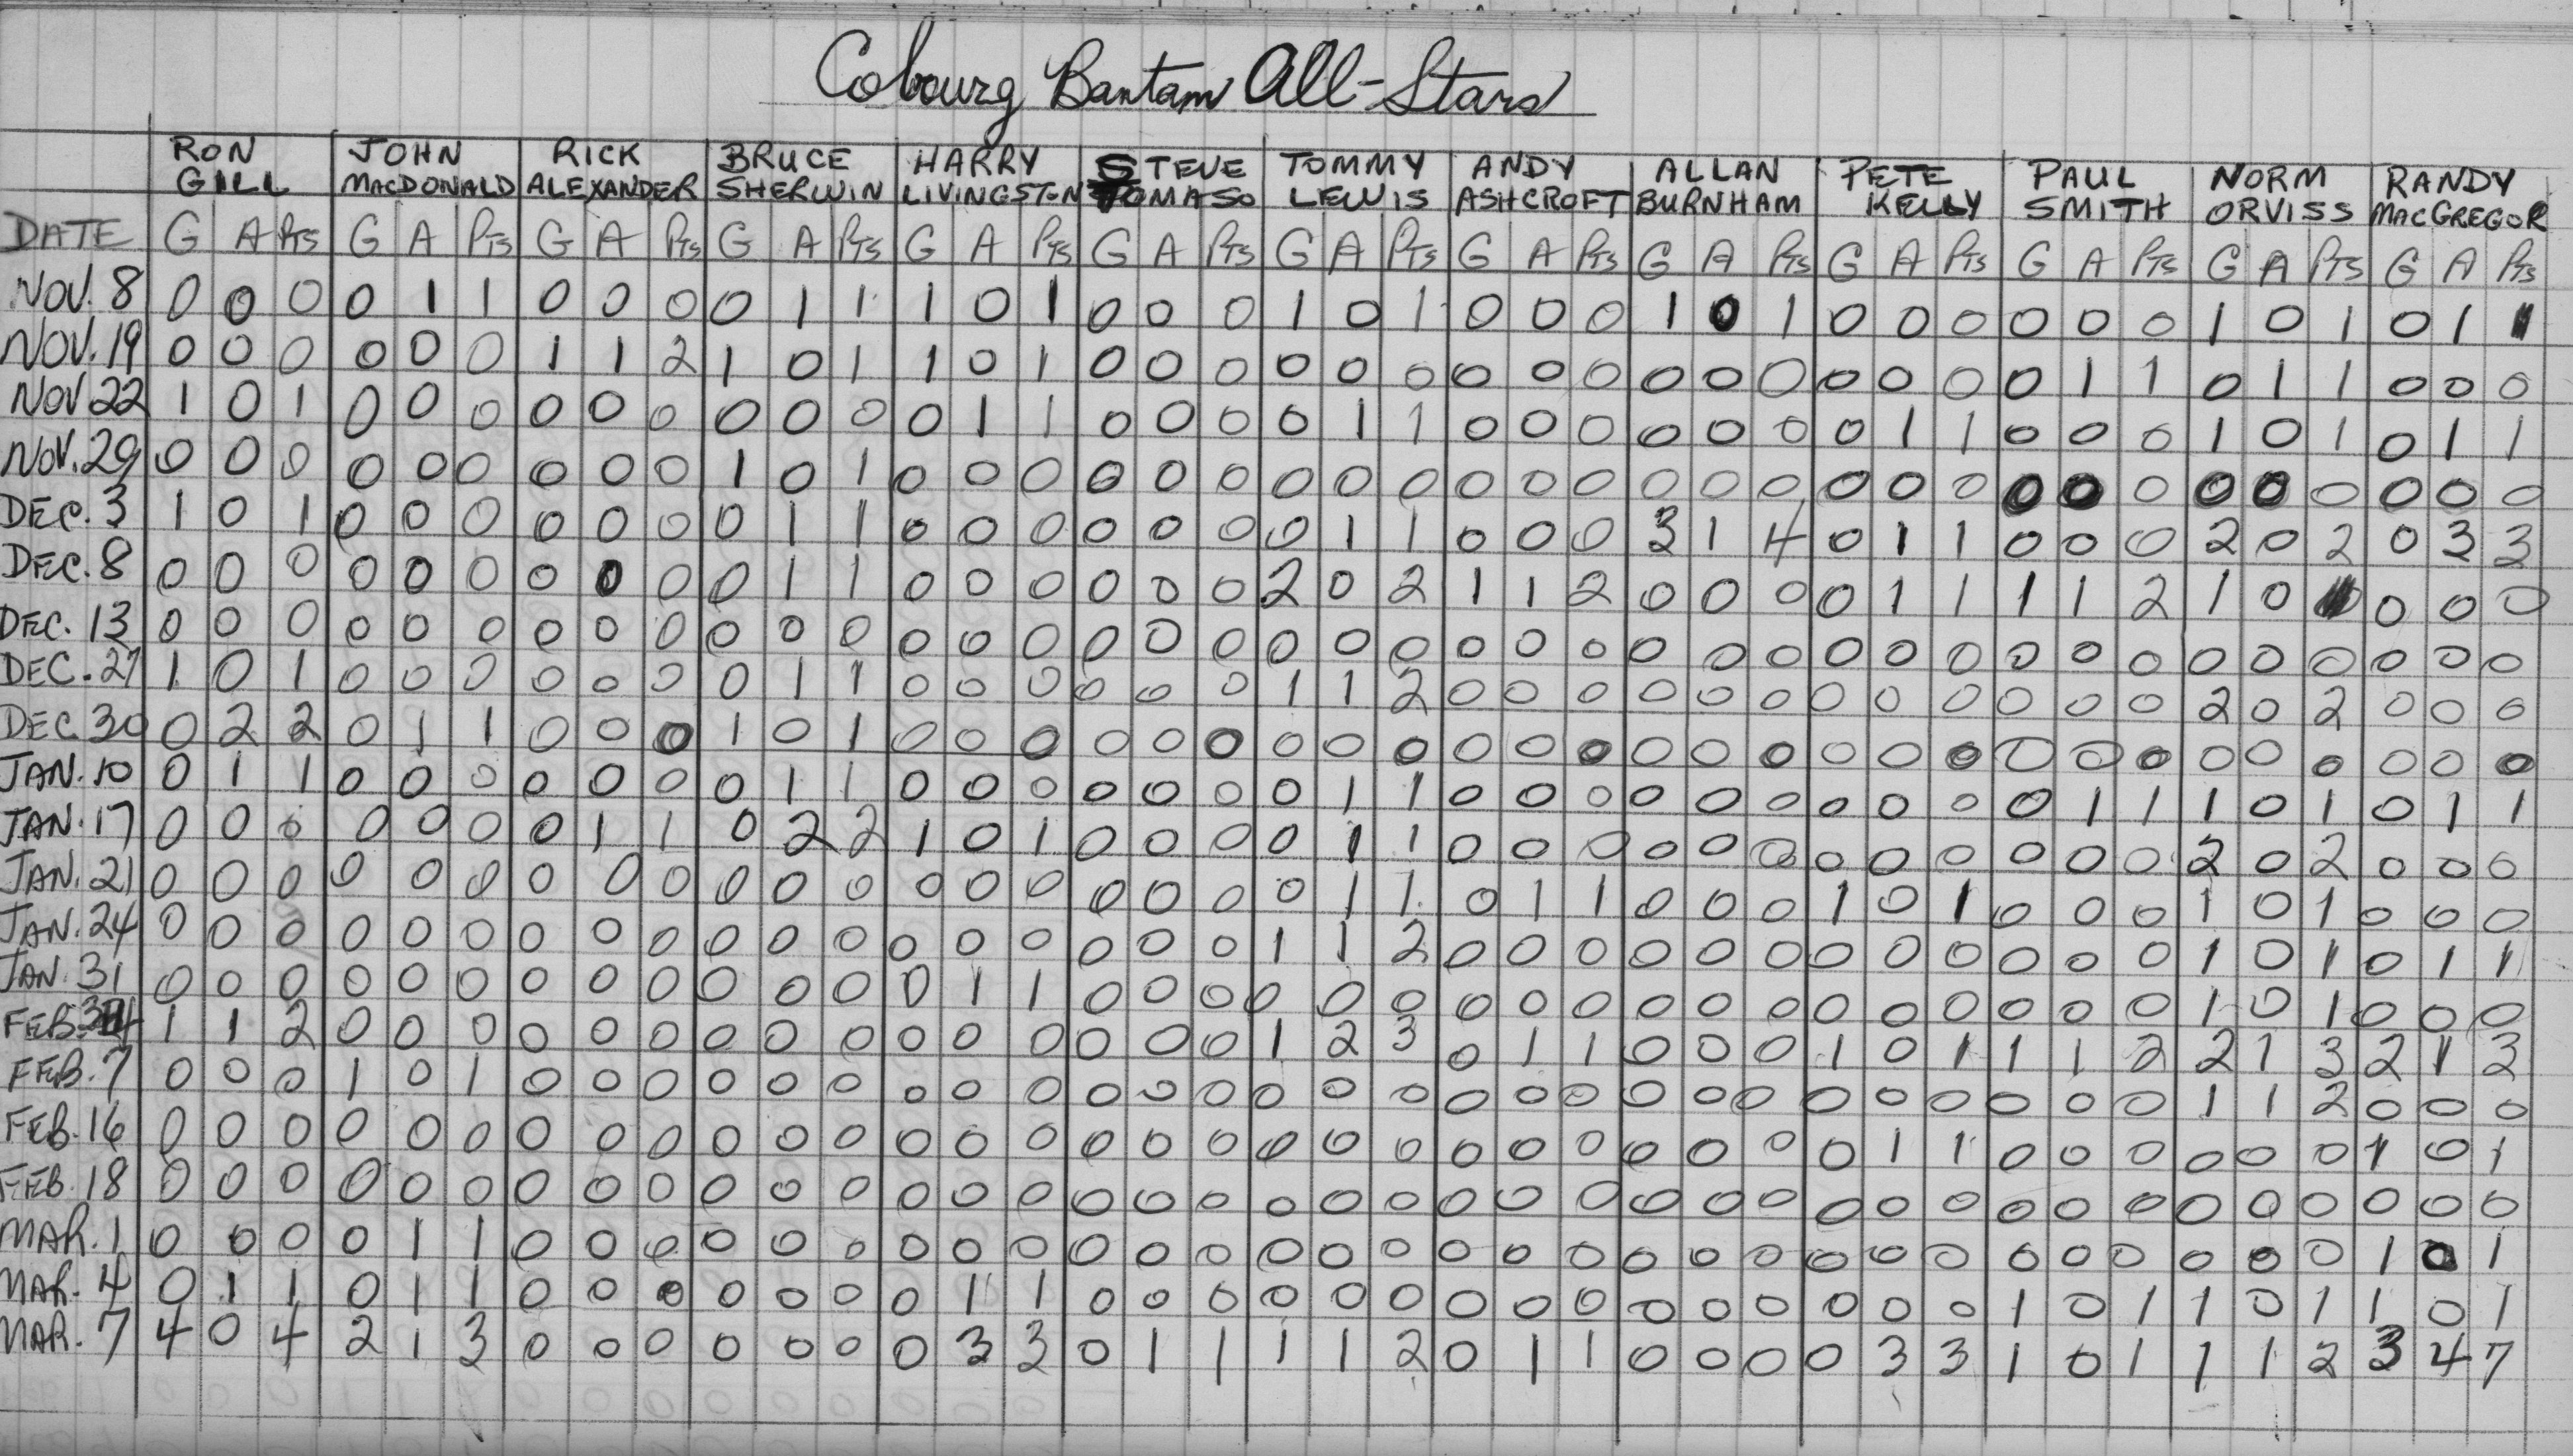 Cobourg Bantam All-Stars
RON JOHN RICK BRUCE HARRY STEVE TOMMY ANDY ALLAN PETE PAUL NORM RANDY
GILL MACDONALD ALEXANDER SHERWIN LIVINGSTON TOMASO LEWIS ASHCROFT BURNHAM KELLY SMITH ORVISS MACGREGOR
DATE G A PTS G A PTS G A PTS G A PTS G A PTS G A PTS G A PTS G A PTS G A PTS G A PTS G A PTS G A PTS G A PTS
NOV. 8 0 0 0 0 1 1 0 0 0 0 1 1 1 0 1 0 0 0 1 0 1 0 0 0 1 0 1 0 0 0 0 0 0 1 0 1 0 1 1
NOV. 19 0 0 0 0 0 0 1 1 2 1 0 1 1 0 1 0 0 0 0 0 0 0 0 0 0 0 0 0 0 0 0 1 1 0 1 1 0 0 0
NOV 22 1 0 1 0 0 0 0 0 0 0 0 0 0 1 1 0 0 0 0 1 1 0 0 0 0 0 0 0 1 1 0 0 0 1 0 1 0 1 1
NOV. 29 0 0 0 0 0 0 0 0 0 1 0 1 0 0 0 0 0 0 0 0 0 0 0 0 0 0 0 0 0 0 0 0 0 0 0 0 0 0 0
DEC. 3 1 0 1 0 0 0 0 0 0 0 1 1 0 0 0 0 0 0 0 1 1 0 0 0 3 1 4 0 1 1 0 0 0 2 0 2 0 3 3
DEC. 8 0 0 0 0 0 0 0 0 0 0 1 1 0 0 0 0 0 0 2 0 2 1 1 2 0 0 0 0 1 1 1 1 2 1 0 0 0 0
DEC. 13 0 0 0 0 0 0 0 0 0 0 0 0 0 0 0 0 0 0 0 0 0 0 0 0 0 0 0 0 0 0 0 0 0 0 0 0 0 0 0
DEC. 27 1 0 1 0 0 0 0 0 0 0 1 1 0 0 0 0 0 0 1 1 2 0 0 0 0 0 0 0 0 0 0 0 0 2 0 2 0 0 0
DEC. 30 0 2 2 0 1 1 0 0 0 1 0 1 0 0 0 0 0 0 0 0 0 0 0 0 0 0 0 0 0 0 0 0 0 0 0 0 0 0 0
JAN. 10 0 1 1 0 0 0 0 0 0 0 1 1 0 0 0 0 0 0 0 1 1 0 0 0 0 0 0 0 0 0 0 1 1 1 0 1 0 1 1
JAN. 17 0 0 0 0 0 0 0 1 1 0 2 2 1 0 1 0 0 0 0 1 1 0 0 0 0 0 0 0 0 0 0 0 0 2 0 2 0 0 0
JAN. 21 0 0 0 0 0 0 0 0 0 0 0 0 0 0 0 0 0 0 0 1 1 0 1 1 0 0 0 1 0 1 0 0 0 1 0 1 0 0 0
JAN. 24 0 0 0 0 0 0 0 0 0 0 0 0 0 0 0 0 0 0 1 1 2 0 0 0 0 0 0 0 0 0 0 0 0 1 0 1 0 1 1
JAN. 31 0 0 0 0 0 0 0 0 0 0 0 0 0 1 1 0 0 0 0 0 0 0 0 0 0 0 0 0 0 0 0 0 0 1 0 1 0 0 0
FEB. 1 1 2 0 0 0 0 0 0 0 0 0 0 0 0 0 0 0 1 2 3 0 1 1 0 0 0 1 0 1 1 1 2 2 1 3 2 1 3
FEB. 7 0 0 0 1 0 1 0 0 0 0 0 0 0 0 0 0 0 0 0 0 0 0 0 0 0 0 0 0 0 0 0 0 0 1 1 2 0 0 0
FEB. 16 0 0 0 0 0 0 0 0 0 0 0 0 0 0 0 0 0 0 0 0 0 0 0 0 0 0 0 0 1 1 0 0 0 0 0 0 1 0 1
FEB. 18 0 0 0 0 0 0 0 0 0 0 0 0 0 0 0 0 0 0 0 0 0 0 0 0 0 0 0 0 0 0 0 0 0 0 0 0 0 0 0
MAR. 1 0 0 0 0 1 1 0 0 0 0 0 0 0 0 0 0 0 0 0 0 0 0 0 0 0 0 0 0 0 0 0 0 0 0 0 0 1 0 1
MAR. 4 0 1 1 0 1 1 0 0 0 0 0 0 0 1 1 0 0 0 0 0 0 0 0 0 0 0 0 0 0 0 1 0 1 1 0 1 1 0 1
MAR. 7 4 0 4 2 1 3 0 0 0 0 0 0 0 3 3 0 1 1 1 1 2 0 1 1 0 0 0 0 3 3 1 0 1 1 1 2 3 4 7